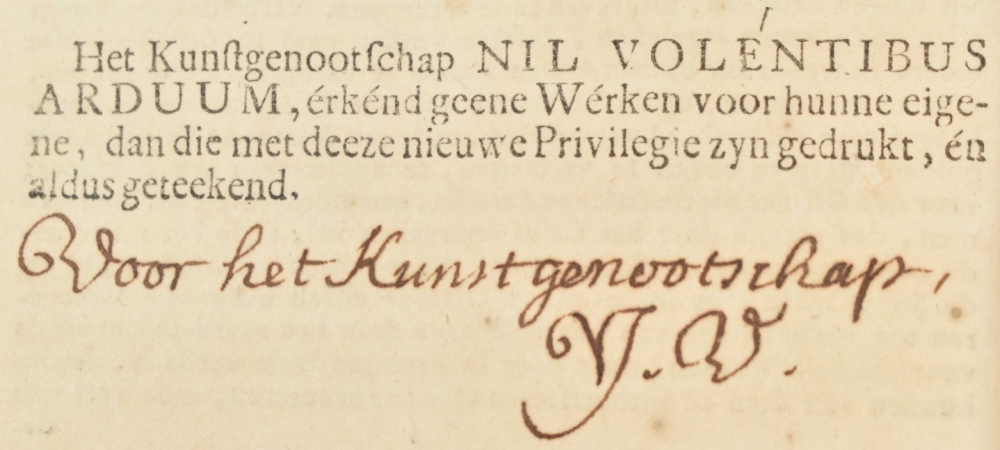 Het Kunſtgenootſchap NIL VOLENTIBUS
ARDUUM, érkénd geene Wérken voor hunne eige-
ne, dan die met deeze nieuwe Privilegie zyn gedrukt, én
aldus geteekend.
Voor het Kunstgenootschap,
Y. V.